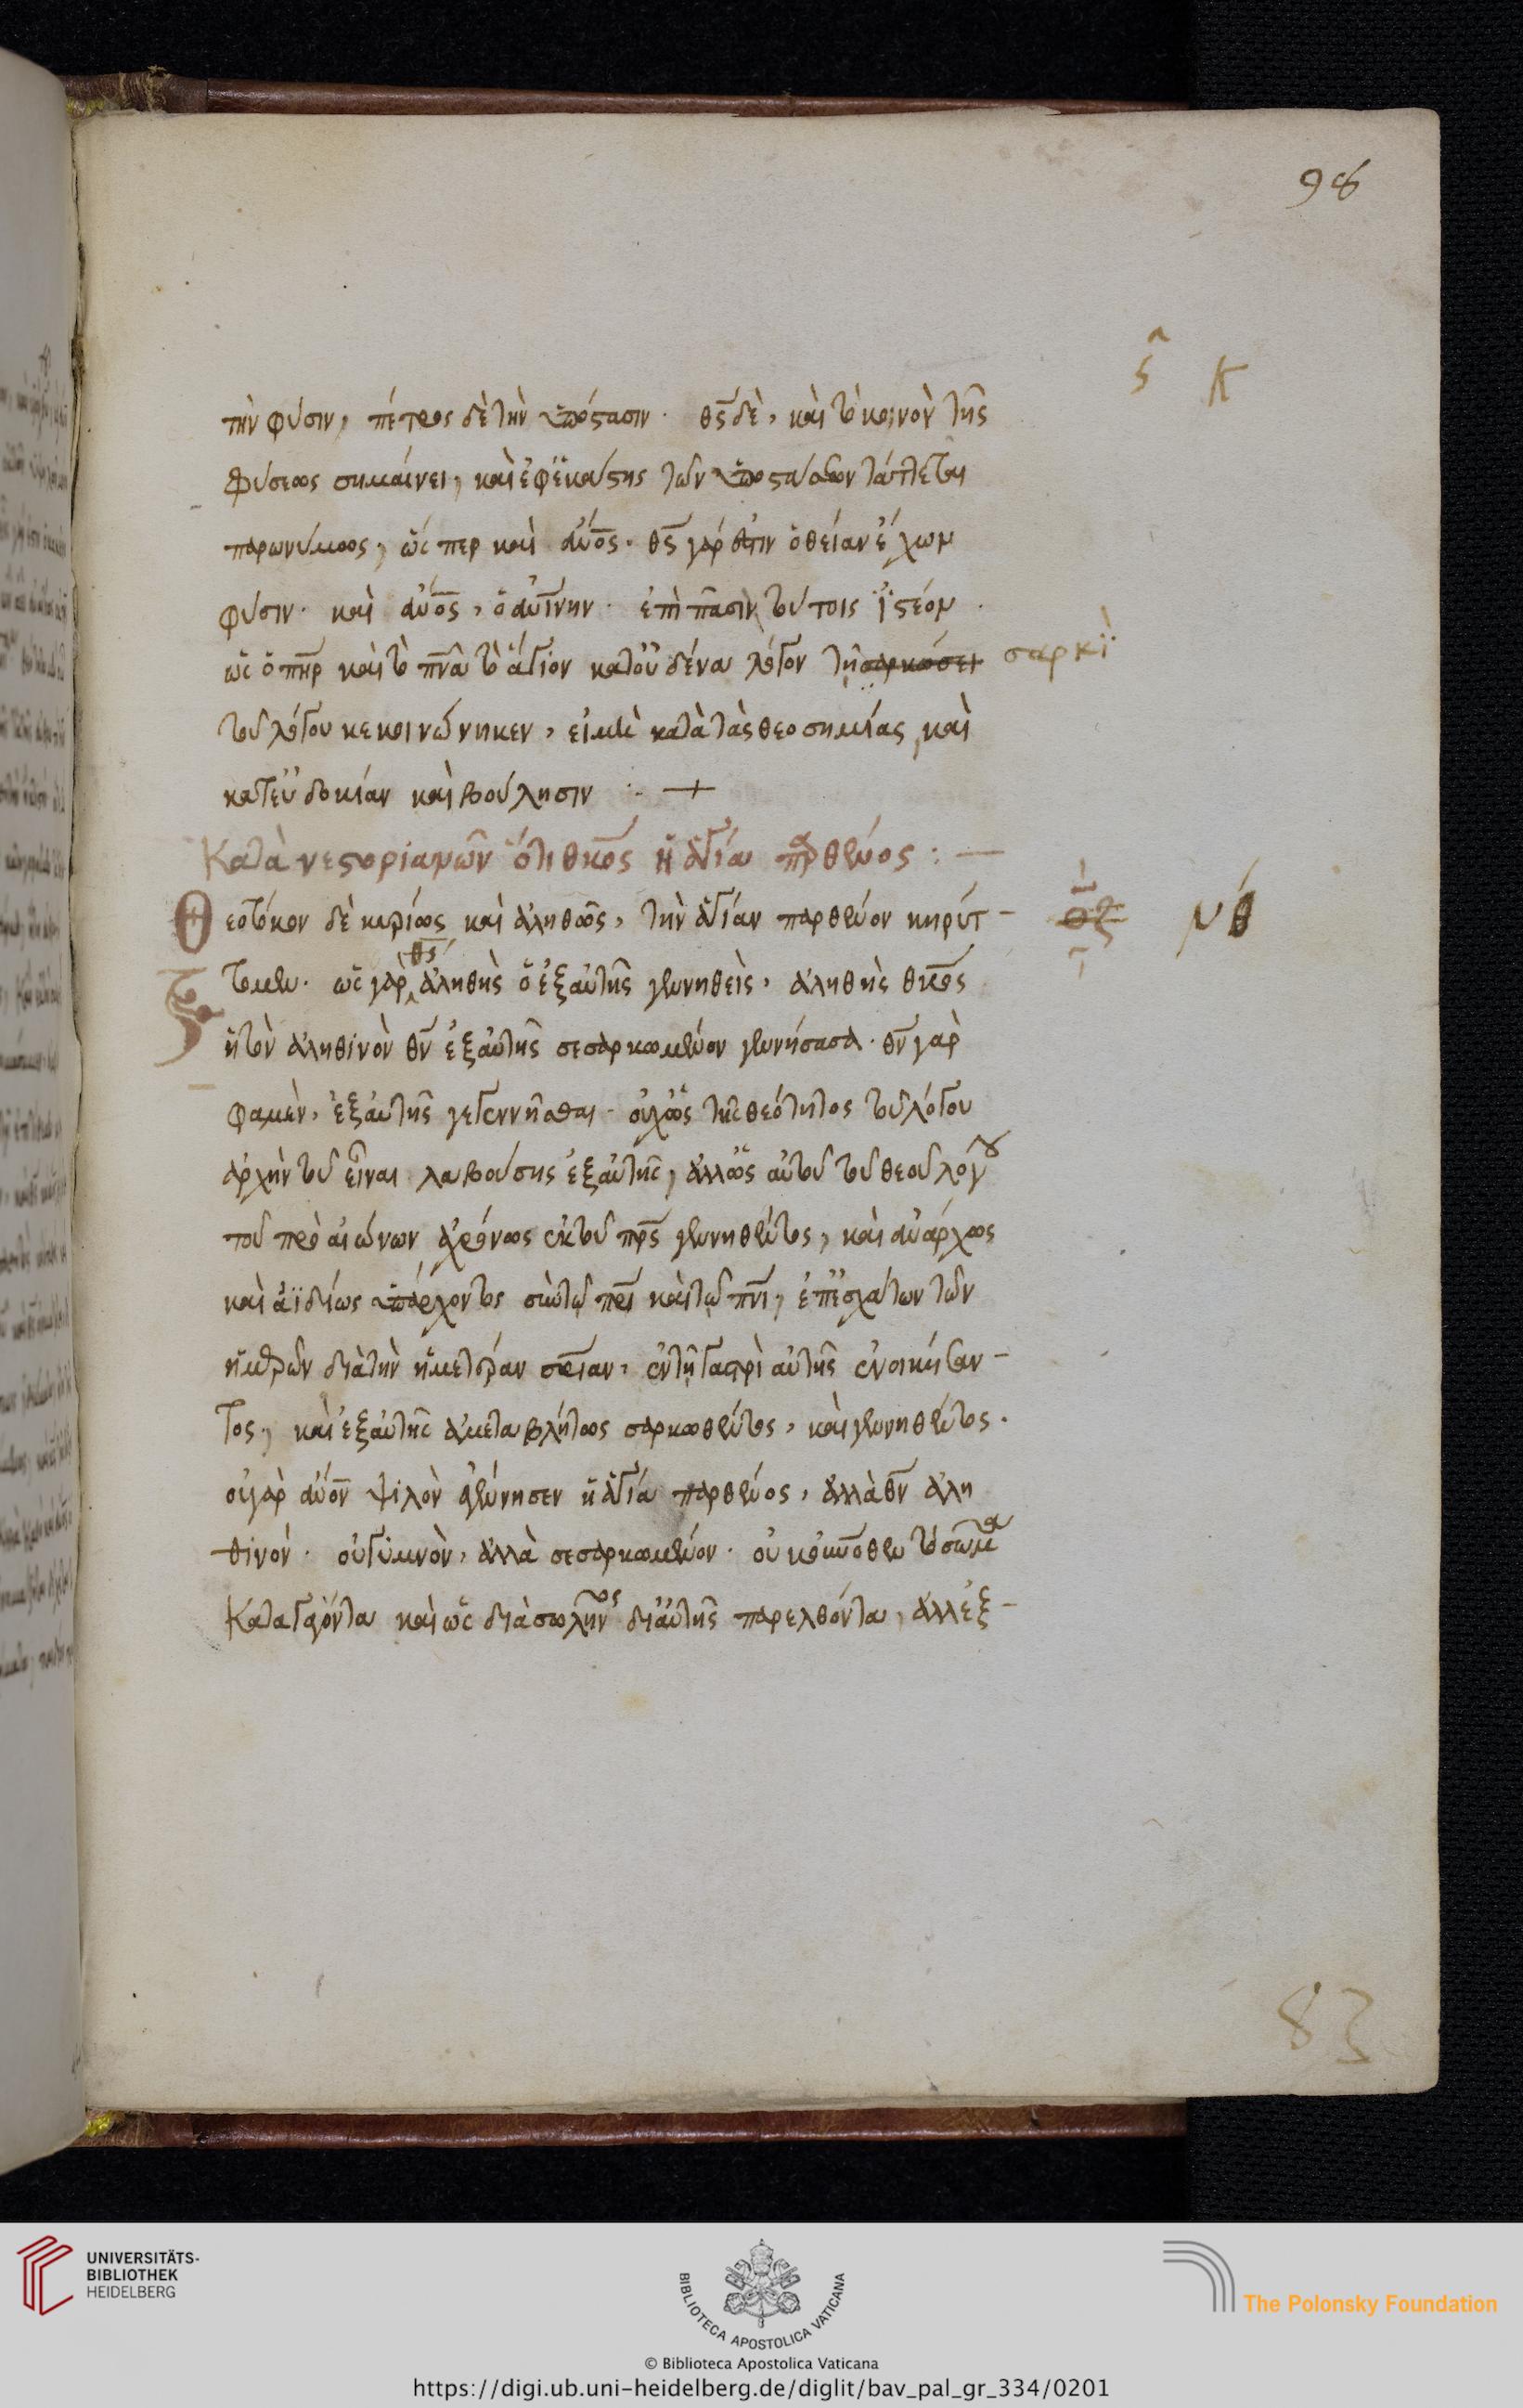 98
ϛ Κ
τὴν φύσιν, πέτρος δὲ τὴν ὑπόστασιν. θς δὲ, καὶ τὸ κοινὸν τῆς
φύσεως σημαίνει, καὶ ἐφ' ἑκάστης τῶν ὑποστάσεων τάττεται
παρωνύμως, ὥσπερ καὶ ἄνος. θς γάρ ἐστιν ὁ θείαν ἔχων
φύσιν. καὶ ἄνος, ὁ ἀνίνην. ἐπὶ πᾶσιν τούτοις ἰστέον.
ὡς ὁ πηρ καὶ τὸ πνα τὸ ἅγιον κατ' οὐδένα λόγον τῇ σαρκώσει σαρκὶ
τοῦ λόγου κεκοινώνηκεν, εἰ μὴ κατὰ τὰς θεοσημίας, καὶ
κατ' εὐδοκίαν καὶ βούλησιν
Κατὰ νεστοριανῶν ὅτι θκος ἡ ἁγία παρθένος:
Θεοτόκον δὲ κυρίως καὶ ἀληθῶς, τὴν ἁγίαν παρθένον κηρύτ- νθ
τομεν. ὡς γὰρ θς ἀληθὴς ὁ ἐξ αὐτῆς γεννηθεὶς, ἀληθὴς θκος
ἡ τὸν ἀληθινὸν θν ἐξ αὐτῆς σεσαρκωμένον γεννήσασα. θν γὰρ
φαμὲν, ἐξ αὐτῆς γεγεννῆσθαι. οὐχ ὡς τῆς θεότητος τοῦ λόγου
ἀρχὴν τοῦ εἶναι λαβούσης ἐξ αὐτῆς, ἀλλ' ὡς αὐτοῦ τοῦ θεοῦ λόγου
τοῦ πρὸ αἰώνων ἀχρόνως ἐκ τοῦ πρς γεννηθέντος, καὶ ἀνάρχως
καὶ ἀϊδίως ὑπάρχοντος σὺν τῷ πρι καὶ τῷ πνι, ἐπ' ἐσχάτων τῶν
ἡμερῶν διὰ τὴν ἡμετέραν σριαν, ἐν τῇ γαστρὶ αὐτῆς ἐνοικήσαν-
τος, καὶ ἐξ αὐτῆς ἀμεταβλήτως σαρκωθέντος, καὶ γεννηθέντος.
οὐ γὰρ ἄνον ψιλὸν ἐγέννησεν ἡ ἁγία παρθένος, ἀλλὰ θν ἀλη
θινόν. οὐ γυμνὸν, ἀλλὰ σεσαρκωμένον. οὐκ οὐνοθεν τὸ σῶμα
καταγαγόντα καὶ ὡς διὰ σωλῆνος δι' αὐτῆς παρελθόντα, ἀλλ' ἐξ-
83
UNIVERSITÄTS-
BIBLIOTHEK
HEIDELBERG
BIBLIOTECA APOSTOLICA VATICANA
The Polonsky Foundation
© Biblioteca Apostolica Vaticana
https://digi.ub.uni-heidelberg.de/diglit/bav_pal_gr_334/0201